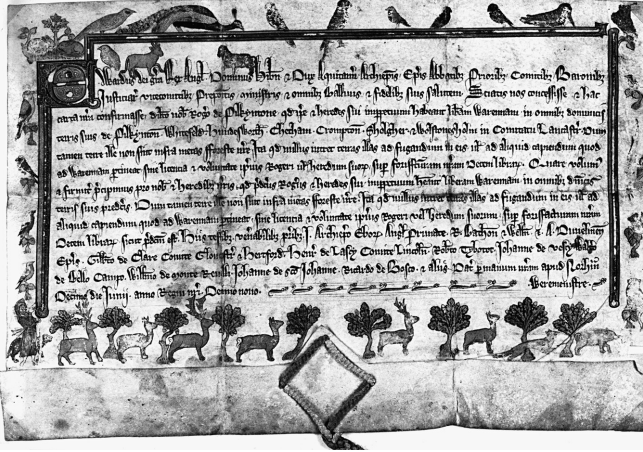 Edwardus dei gra Rex Angl Dominus Hibn & Dux Aquitann Archiepis Epis Abbatibz Prioribz Comitibz Baronibz
Justiciar vicecomitibz Prepositis ministris & omibz Ballivis & fidelibz suis saltem Sciatis nos concessisse & hac
carta nra confirmasse dilco nob Rogo de Pilkyntone qd ipe & heredes sui imppetuum habeant libam Warennam in omibz dominicis
terris suis de Pilkynton Whitefeld Undesworth Chetham Crompton & Wolstonesholm in Comitatu Lancastr Dum
tamen terre ille non sint infra metas foreste nre Ita qd nullus intret terras illas ad fugandum in eis ul ad aliquid capiendum quod
ad Warennam ptineat sine licencia & voluntate ipius Rogeri ul heredum suor sup forisfcuram nram Decem librar Quare volum
& firmit precipimus pro nob & heredibz nris qd pdcus Rogus & heredes sui imppetuum heant liberam Warennam in omibz dnicis
terris suis predcis Dum tamen terre ille non sint infra metas foreste nre Ita qd nullus intret terras illas ad fugandum in eis ul ad
aliquid capiendum quod ad Warennam ptineat sine licencia & voluntate ipius Rogeri vel heredum suorum sup forisfacturam nram
Decem librar sicut pdcm est Hiis testibz venerabilibz pribz J Archiepo Ebor Angl Primate R Bathon & Well & A Dunelmen
Epis Gilbto de Clare Comite Gloucestr & Hertford Henr de Lascy Comite Lincoln Robto Tybotot Johanne de Vescy
de Bello Campo Willmo de monte Revelli Johanne de sco Johanne Ricardo de Bosco & aliis Dat p manum nram apud
Decimo die Junii anno Regni nri Decimo nono Weremenistre